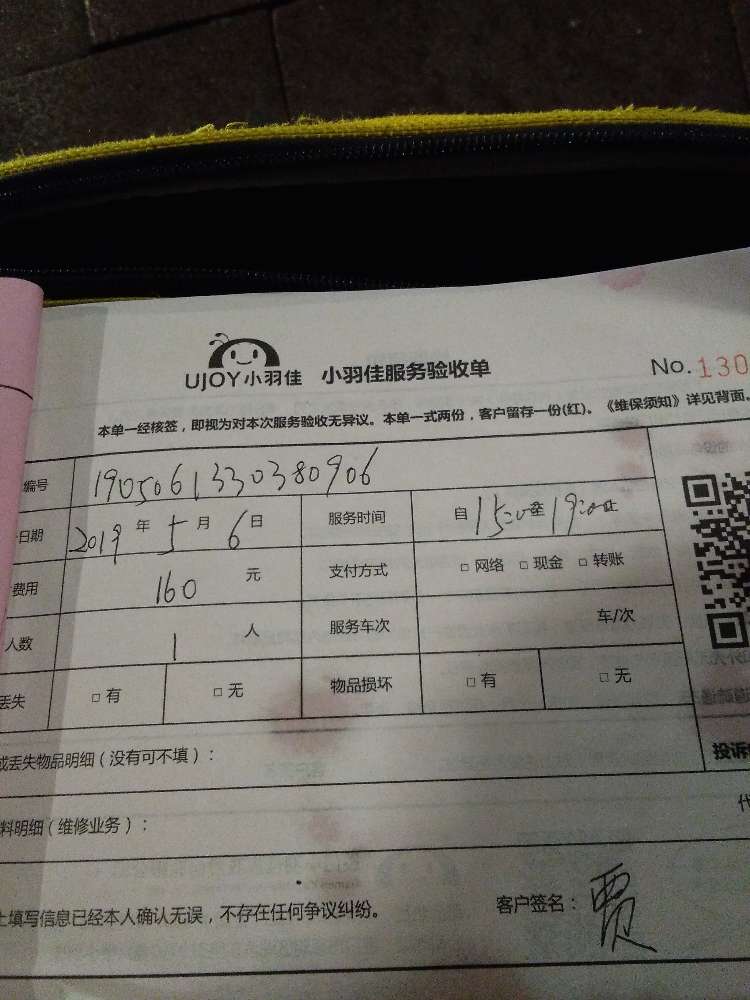 UJOY小羽佳 小羽佳服务验收单 No.130
本单一经核签，即视为对本次服务验收无异议。本单一式两份，客户留存一份(红)。《维保须知》详见背面。
编号 1905061330380906
日期 2019年5月6日 服务时间 自15:00至19:00止
费用 160元 支付方式 □网络 □现金 □转账
人数 1人 服务车次 车/次
丢失 □有 □无 物品损坏 □有 □无
或丢失物品明细（没有可不填）： 投诉
料明细（维修业务）：
上填写信息已经本人确认无误，不存在任何争议纠纷。 客户签名：贾